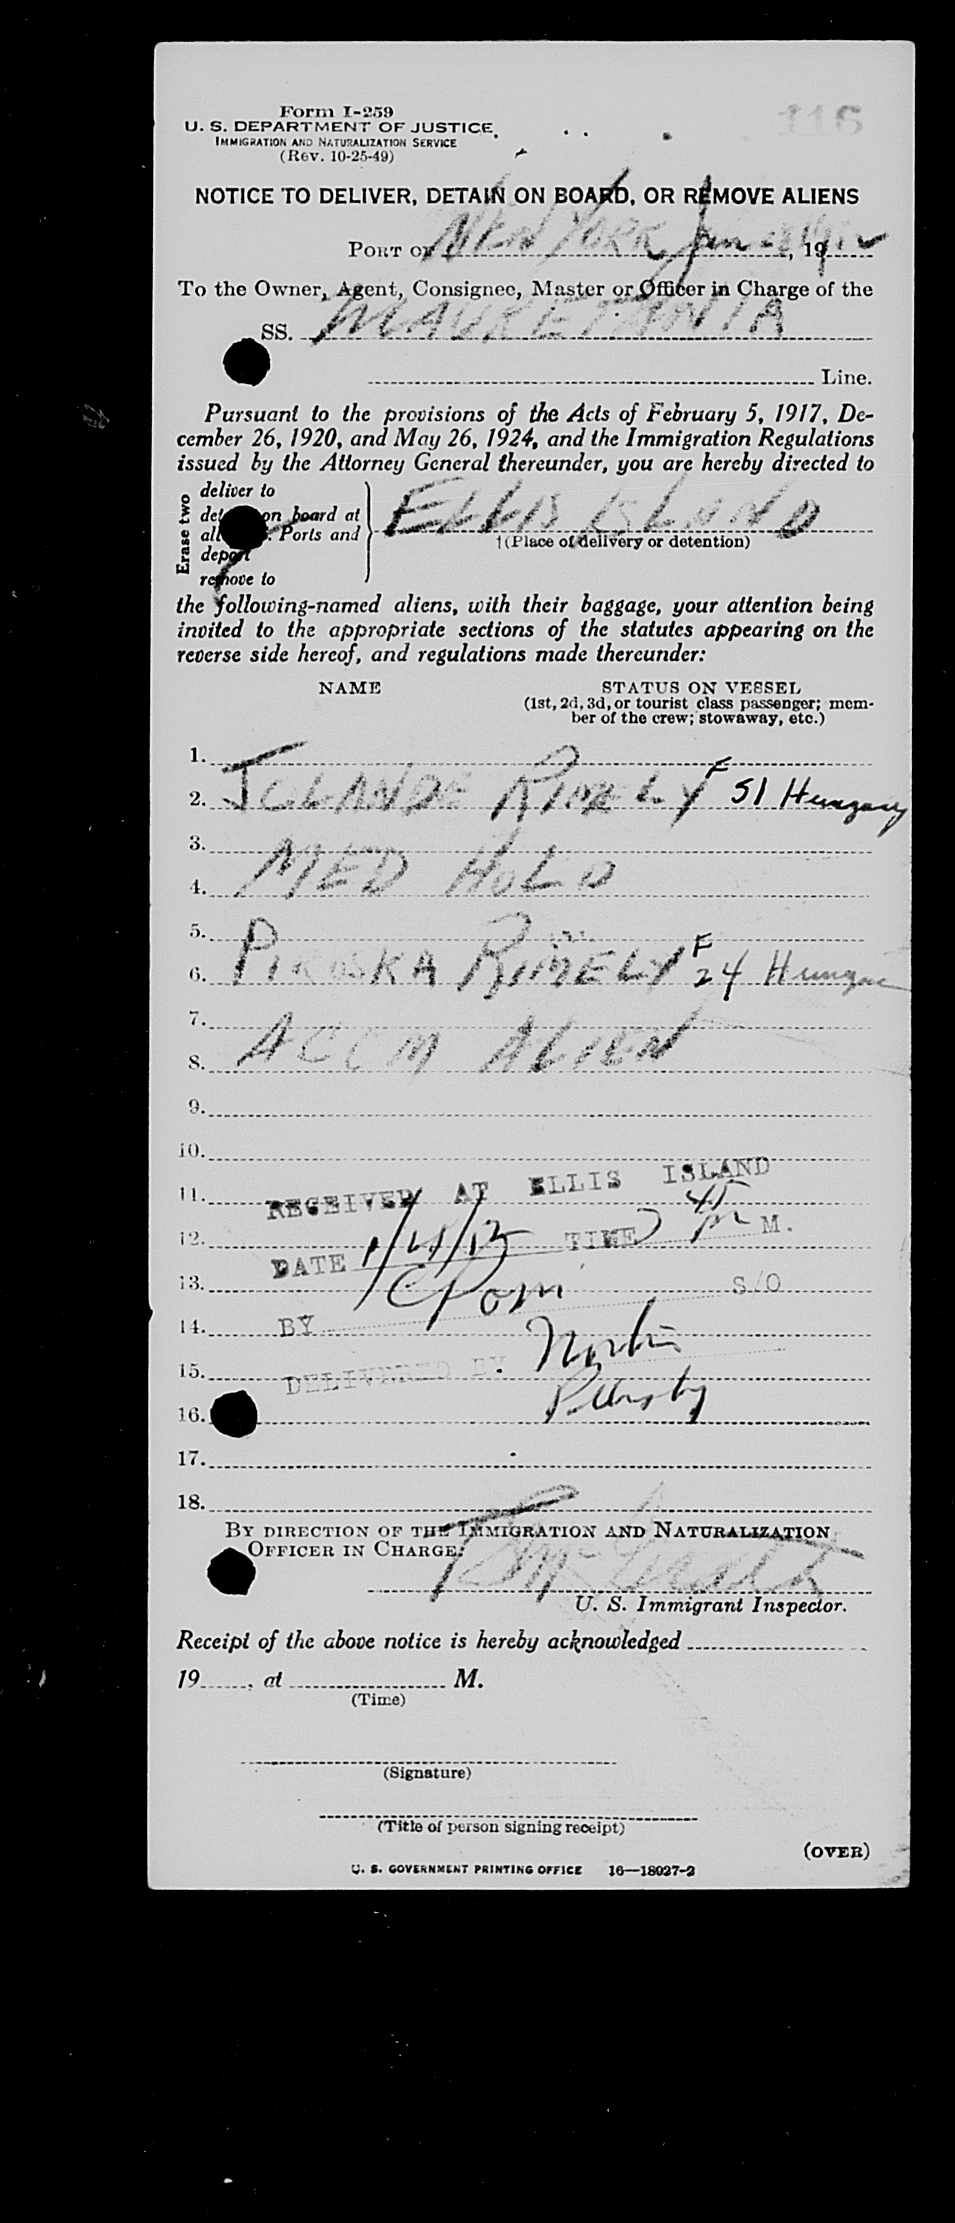 116
Form I-259
U. S. DEPARTMENT OF JUSTICE
IMMIGRATION AND NATURALIZATION SERVICE
(Rev. 10-25-49)
NOTICE TO DELIVER, DETAIN ON BOARD, OR REMOVE ALIENS
PORT OF NEW YORK, Jan 19
To the Owner, Agent, Consignee, Master or Officer in Charge of the
SS. MAURETANIA
Line.
Pursuant to the provisions of the Acts of February 5, 1917, De-
cember 26, 1920, and May 26, 1924, and the Immigration Regulations
issued by the Attorney General thereunder, you are hereby directed to
Erase two
deliver to
on board at
Ports and
deport
remove to
ELLIS ISLAND
†(Place of delivery or detention)
the following-named aliens, with their baggage, your attention being
invited to the appropriate sections of the statutes appearing on the
reverse side hereof, and regulations made thereunder:
NAME STATUS ON VESSEL
(1st, 2d, 3d, or tourist class passenger; mem-
ber of the crew; stowaway, etc.)
1.
2. JOLANDE RIMELY F 51 Hungary
3.
4. MED HOLD
5.
6. PIROSKA RIMELY F 24 Hungar
7.
8. ACCM ALIEN
9.
10.
11. RECEIVED AT ELLIS ISLAND
12. DATE TIME 7 45 P M.
13. S/O
14. BY
15. DELIVERED BY
16.
17.
18.
BY DIRECTION OF THE IMMIGRATION AND NATURALIZATION
OFFICER IN CHARGE:
U. S. Immigrant Inspector.
Receipt of the above notice is hereby acknowledged
19 , at M.
(Time)
(Signature)
(Title of person signing receipt)
(OVER)
U. S. GOVERNMENT PRINTING OFFICE 16—18027-2